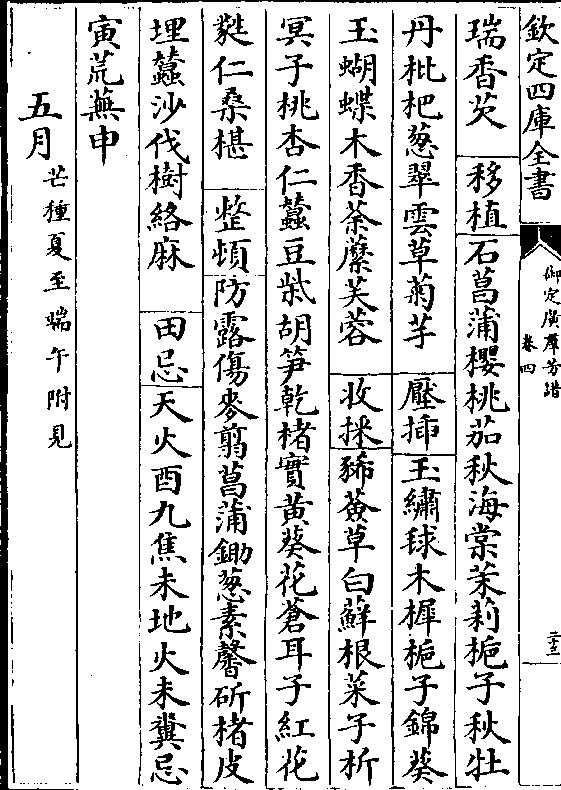 欽定四庫全書
御定廣羣芳譜
卷四
二十三
瑞香芡 移植 石菖蒲櫻桃茄秋海棠茉莉梔子秋牡
丹枇杷葱翠雲草菊芋 壓揷 玉繡毬木樨梔子錦葵
玉蝴蝶木香荼蘼芙蓉 收採 豨薟草白蘚根菜子析
冥子桃杏仁蠶豆柴胡笋乾楮實黄葵花蒼耳子紅花
蕤仁桑椹 整頓 防露傷麥翦菖蒲鋤葱素馨斫楮皮
埋蠶沙伐樹絡麻 田忌 天火酉九焦未地火未糞忌
寅荒蕪申
五月 芒種夏至端午附見